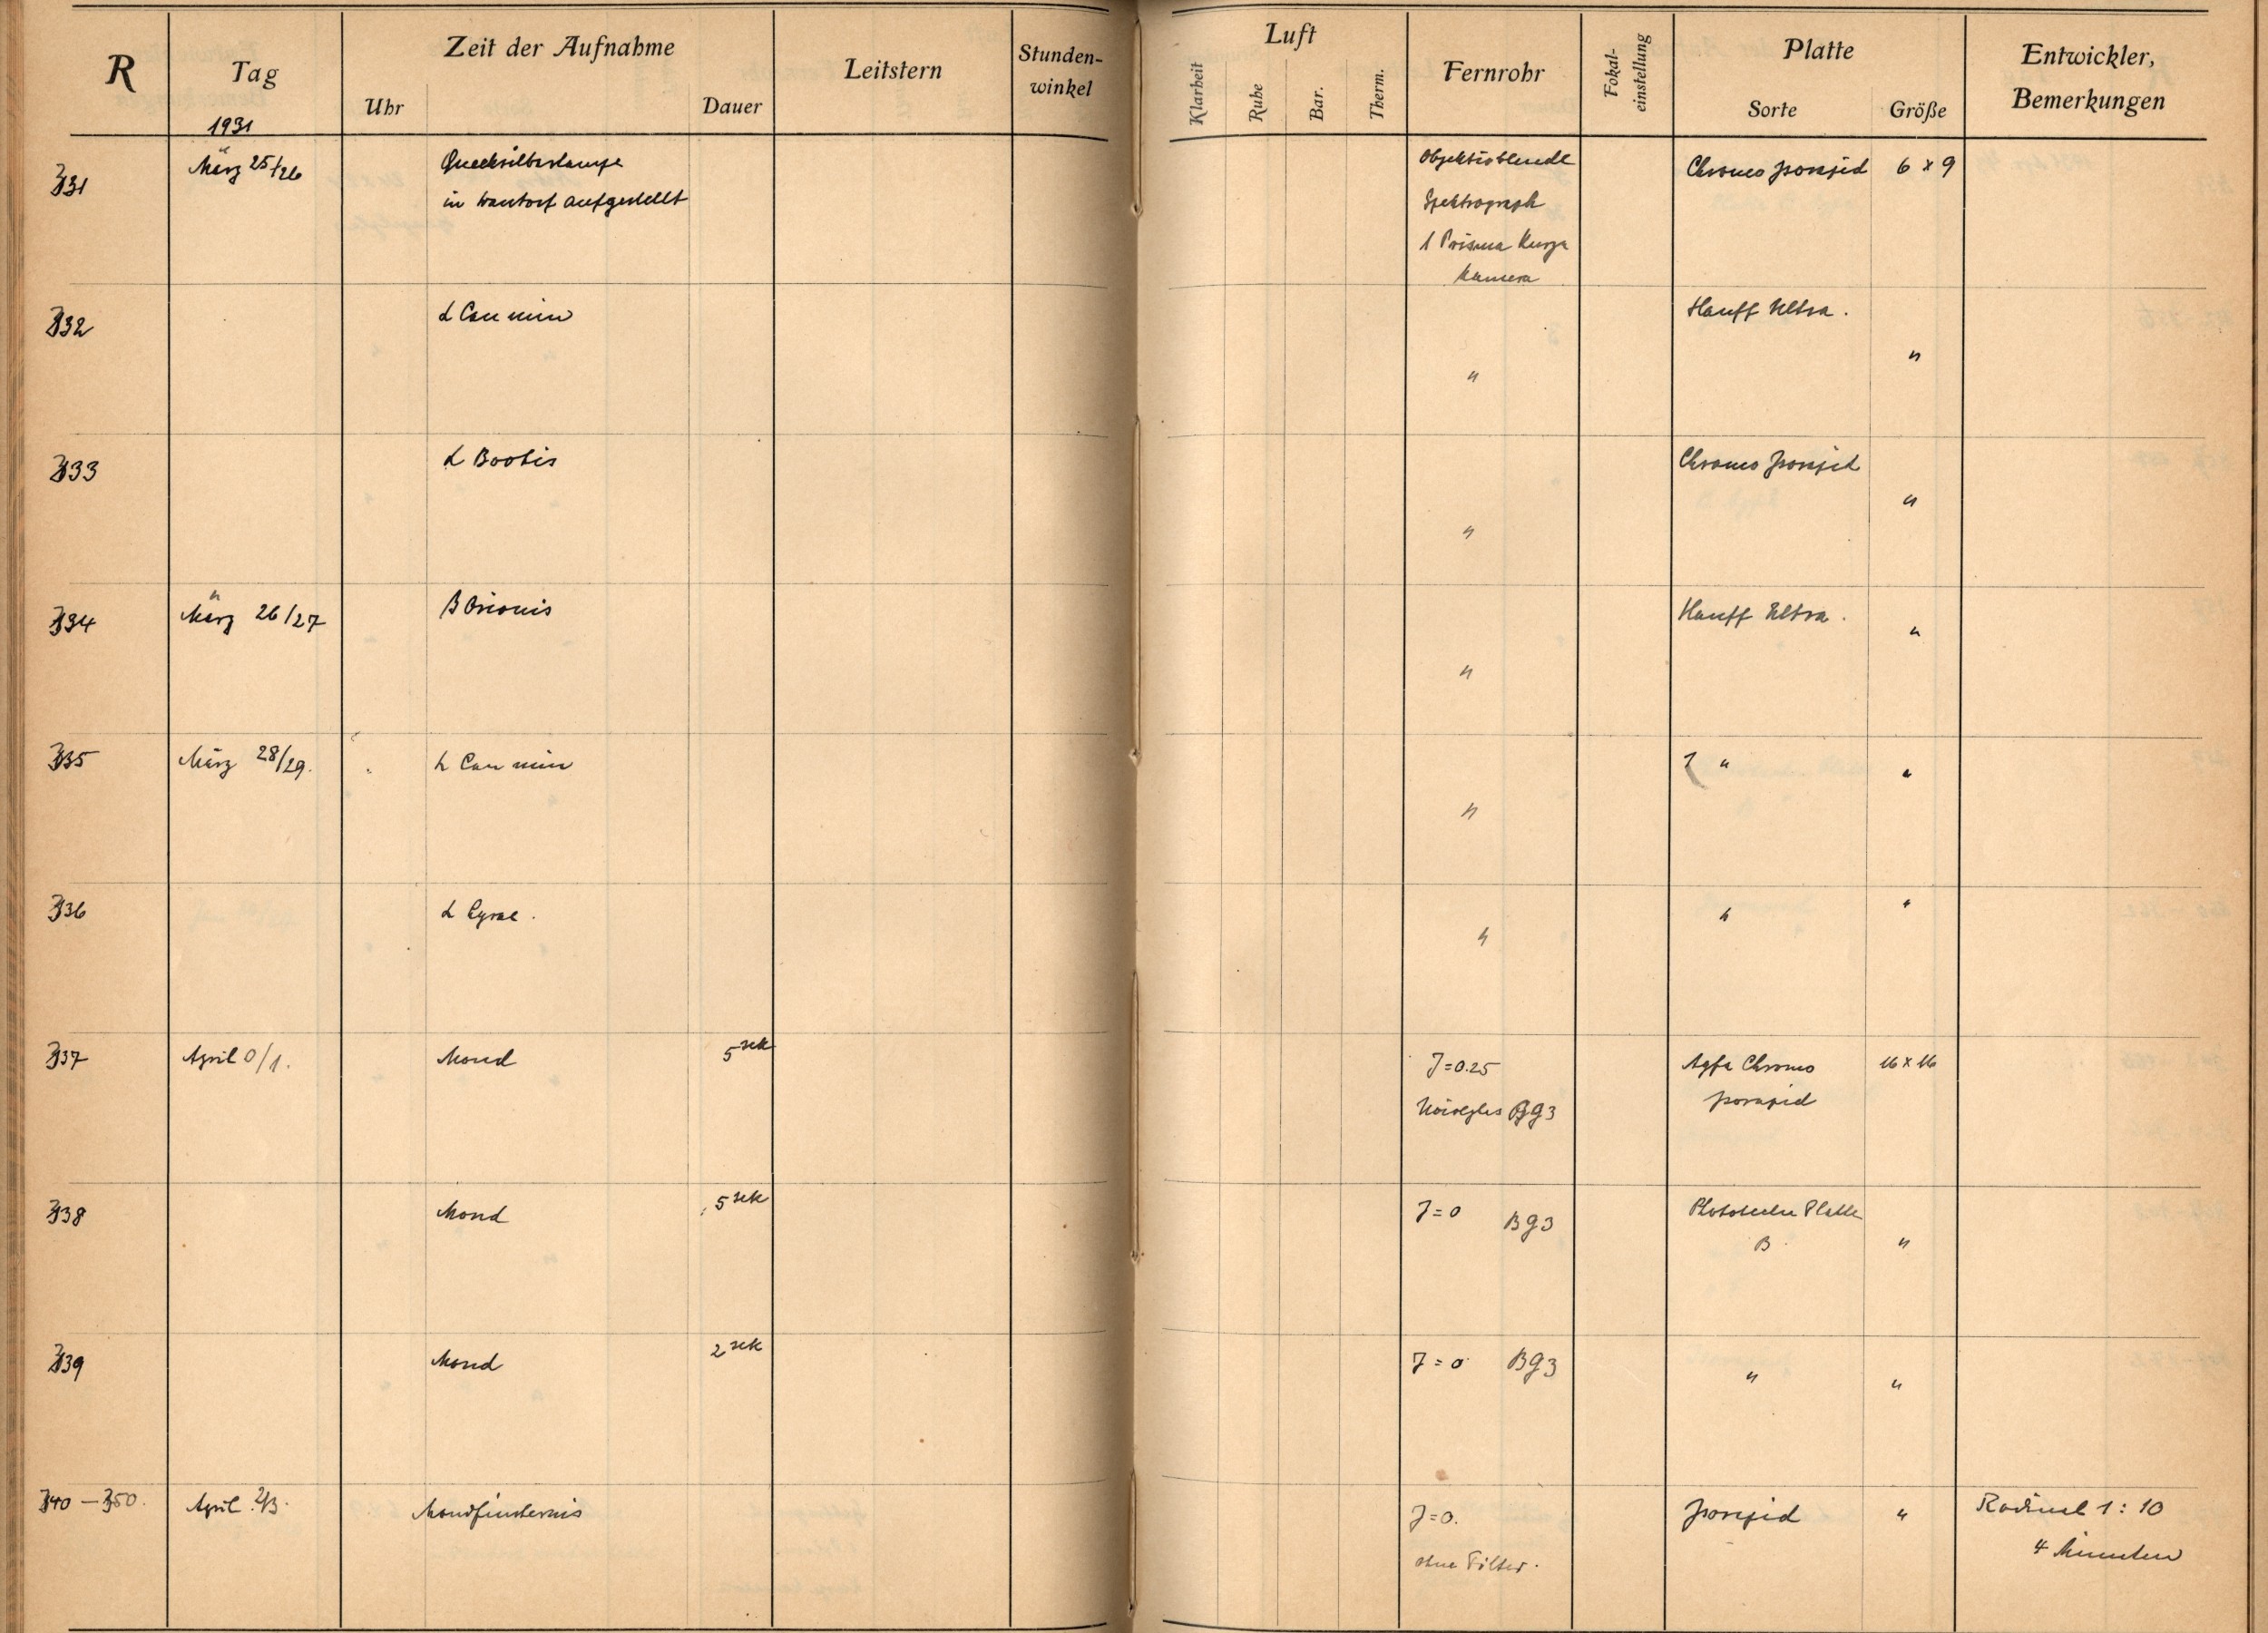 R
Tag
Zeit der Aufnahme
Uhr
Dauer
Leitstern
Stunden-
winkel
Luft
Klarheit
Ruhe
Bar.
Therm.
Fernrohr
Fokal-
einstellung
Platte
Sorte
Größe
Entwickler,
Bemerkungen
1931
331 März 25/26 Quecksilberlampe Objektivblende Chromo Isorapid 6 x 9
in aufgestellt Spektrograph
1 Prisma Kurze
Kamera
332 α Can min " Hauff Ultra. "
333 α Bootis " Chromo Isorapid "
334 März 26/27 β Orionis " Hauff Ultra. "
335 März 28/29. α Can min " " "
336 α Lyrae. " " "
337 April 0/1. Mond 5 sek J=0.25 Agfa Chromo 16 x 16
BG3 Isorapid
338 Mond 5 sek J=0 BG3 Platte
B "
339 Mond 2 sek J=0 BG3 " "
340 – 350. April 2/3. Mondfinsternis J=0. Isorapid " Rodinal 1:10
ohne Filter. 4 Minuten